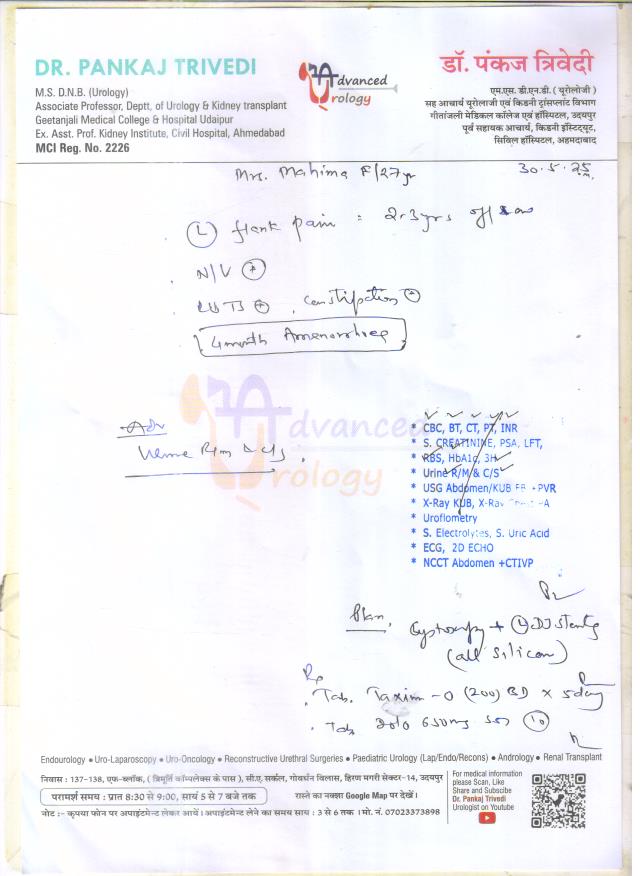 DR. PANKAJ TRIVEDI
M.S. D.N.B. (Urology)
Associate Professor, Deptt. of Urology & Kidney transplant
Geetanjali Medical College & Hospital Udaipur
Ex. Asst. Prof. Kidney Institute, Civil Hospital, Ahmedabad
MCI Reg. No. 2226
Advanced
Urology
डॉ. पंकज त्रिवेदी
एम.एस. डी.एन.बी. ( यूरोलोजी )
सह आचार्य यूरोलाजी एवं किडनी ट्रांसप्लांट विभाग
गीतांजली मेडिकल कॉलेज एवं हॉस्पिटल, उदयपुर
पूर्व सहायक आचार्य, किडनी इंस्टिट्यूट,
सिविल हॉस्पिटल, अहमदाबाद
Mrs. Mahima F/27yr
30.5.25
(L) flank pain : 2-3yrs off & on
N/V (+)
LUTS (+) , Constipation (+)
4 month Amenorrhoea
Adv
Urine R/m & C/S
Advanced
Urology
* CBC, BT, CT, PT, INR
* S. CREATININE, PSA, LFT,
* RBS, HbA1c, 3H
* Urine R/M & C/S
* USG Abdomen/KUB +PVR
* X-Ray KUB, X-Ray
* Uroflometry
* S. Electrolytes, S. Uric Acid
* ECG, 2D ECHO
* NCCT Abdomen +CTIVP
Plan, Cystoscopy + (L) DJ Stenting
(all Silicon)
Rx
. Tab. Taxim-O (200) BD x 5day
. Tab Dolo 650mg SOS (10)
Endourology • Uro-Laparoscopy • Uro-Oncology • Reconstructive Urethral Surgeries • Paediatric Urology (Lap/Endo/Recons) • Andrology • Renal Transplant
निवास : 137-138, एफ-ब्लॉक, ( त्रिमूर्ति कॉम्पलेक्स के पास ), सी.ए. सर्कल, गोवर्धन विलास, हिरण मगरी सेक्टर-14, उदयपुर
परामर्श समय : प्रात 8:30 से 9:00, सायं 5 से 7 बजे तक
रास्ते का नक्शा Google Map पर देखें।
नोट :- कृपया फोन पर अपाइंटमेन्ट लेकर आयें। अपाइंटमेन्ट लेने का समय सायं : 3 से 6 तक । मो. नं. 07023373898
For medical information
please Scan, Like
Share and Subscibe
Dr. Pankaj Trivedi
Urologist on Youtube